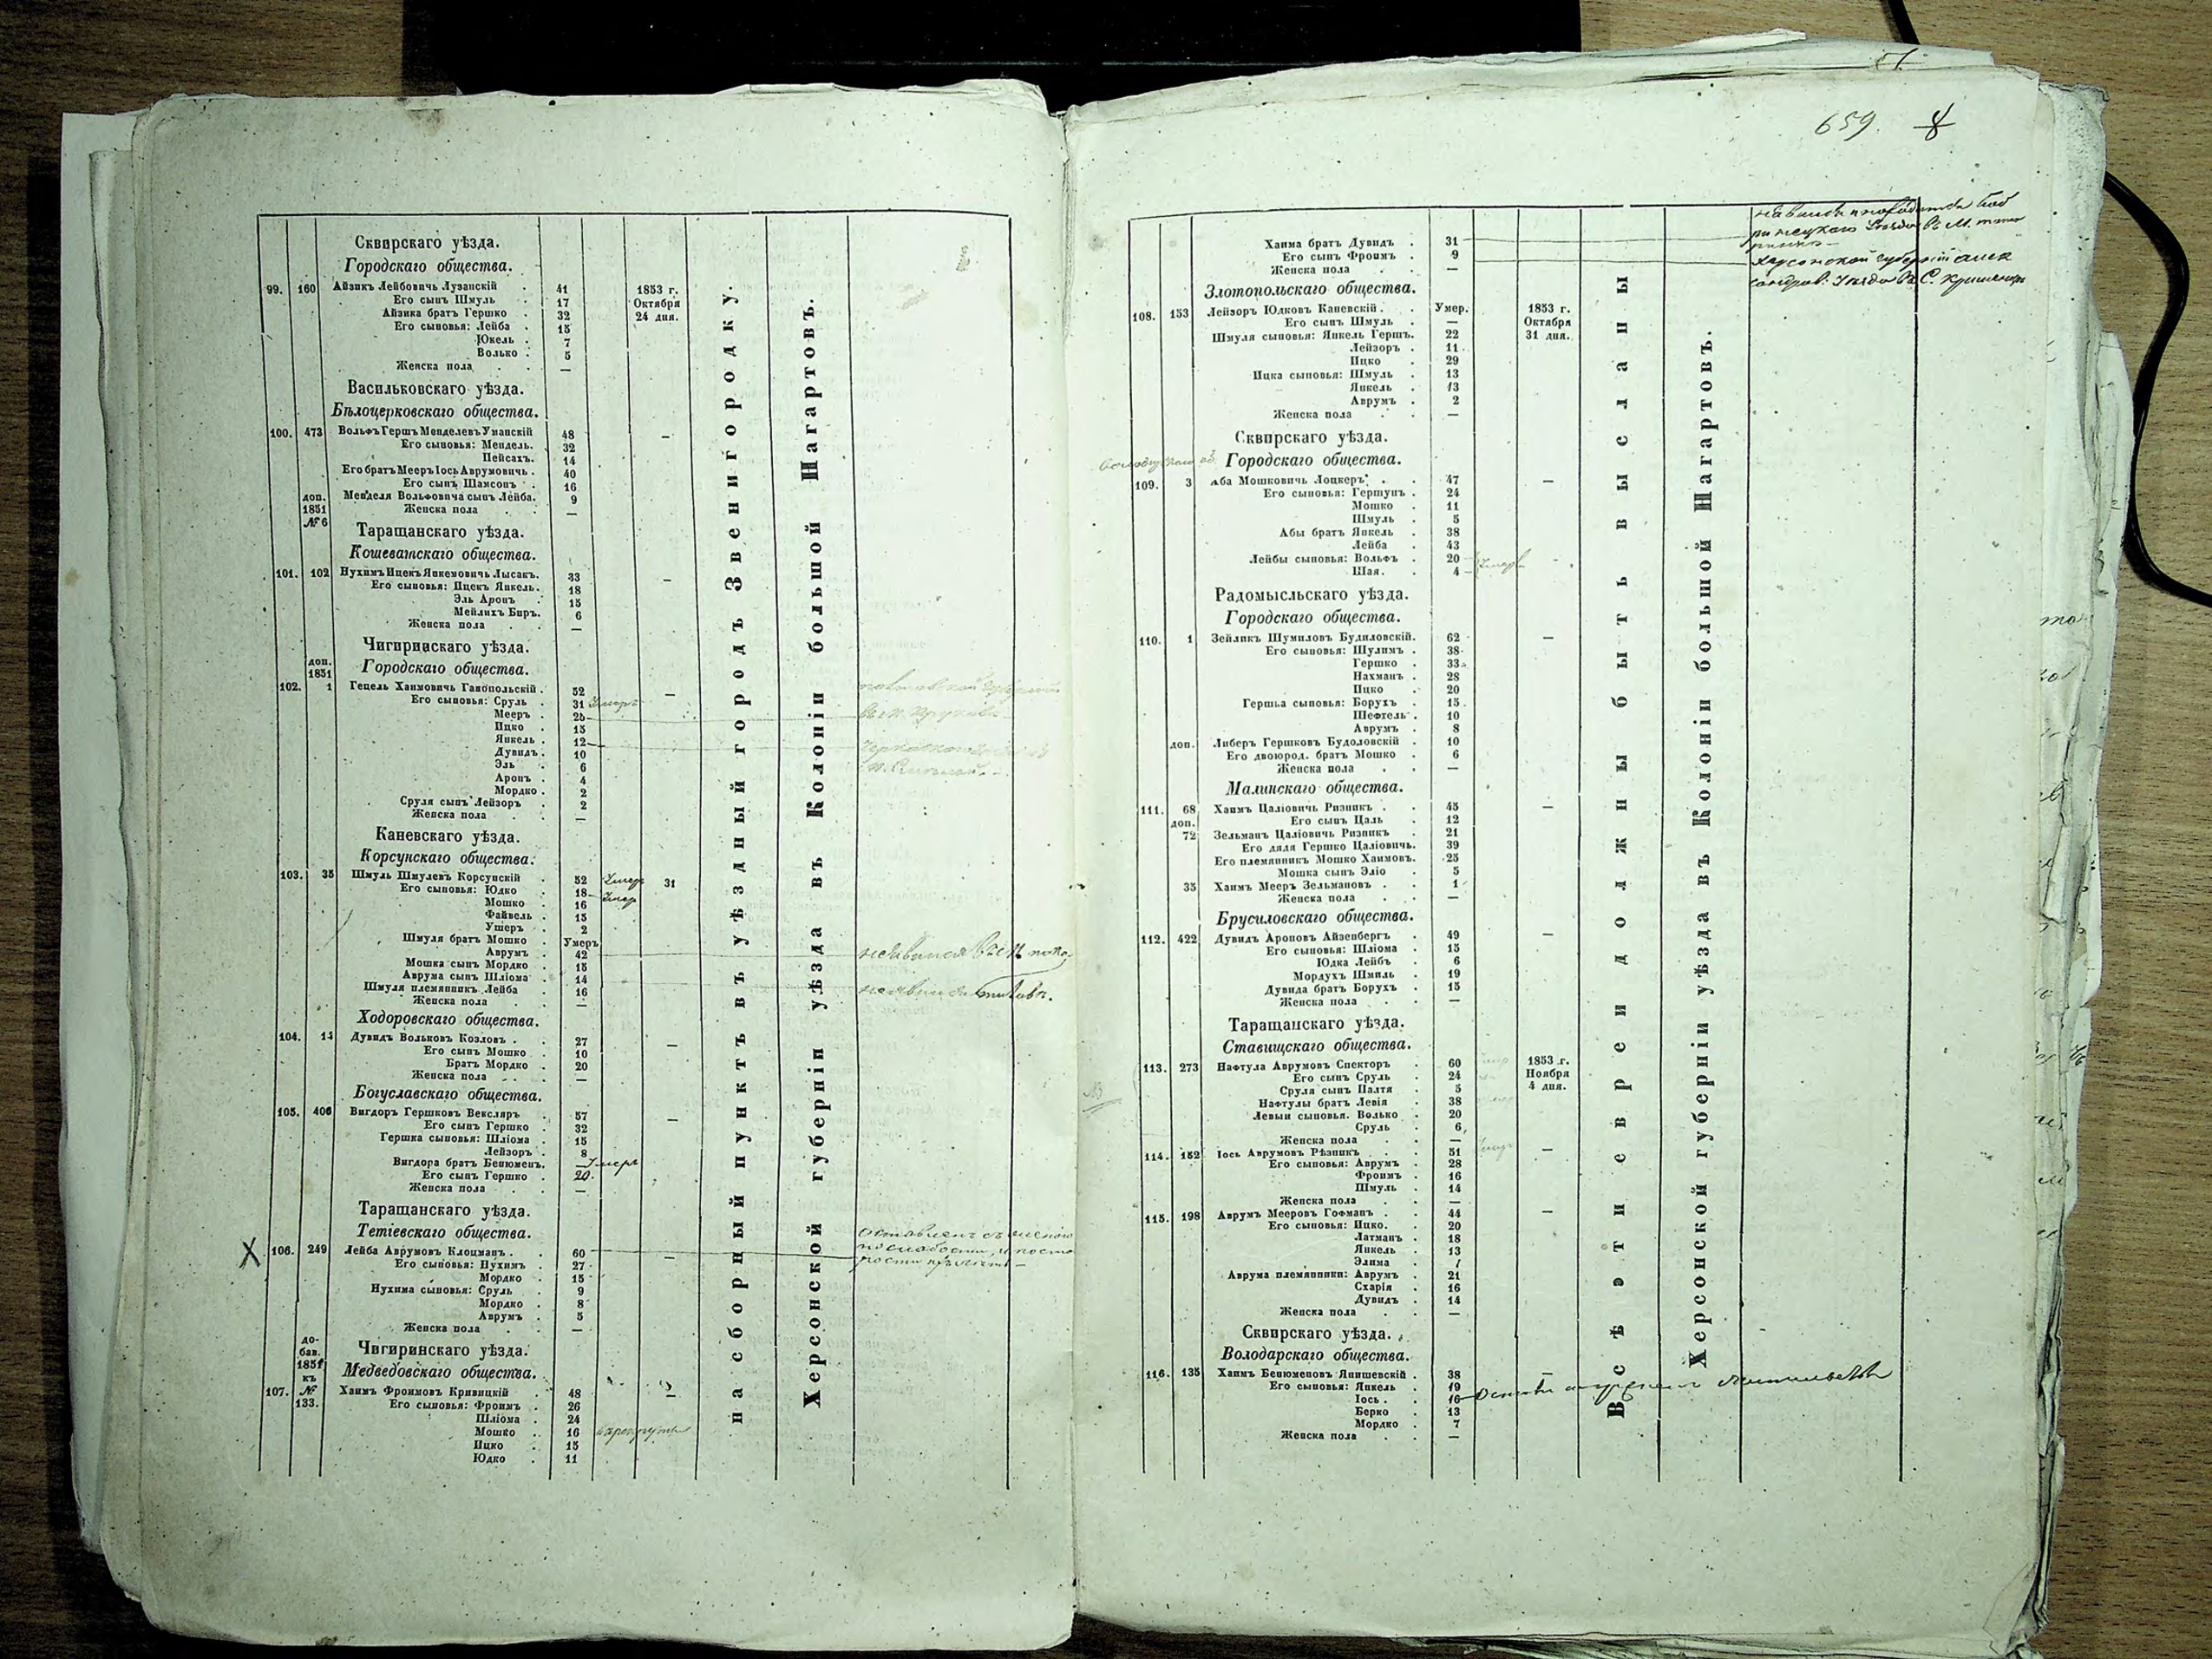 Сквирскаго уѣзда.
Городскаго общества.
99. 160 Айзикъ Лейбовичь Лузанскій . 41 1853 г.
Его сынъ Шмуль . 17 Октября
Айзика братъ Гершко . 32 24 дня.
Его сыновья: Лейба . 15
Юкель . 7
Волько . 5
Женска пола . . —
Васильковскаго уѣзда.
Бѣлоцерковскаго общества.
100. 473 Вольфъ Гершъ Менделевъ Уманскій 48 —
Его сыновья: Мендель. 32
Пейсахъ. 14
Его братъ Мееръ Іось Аврумовичь . 40
Его сынъ Шамсонъ . 16
доп. Менделя Вольфовича сынъ Лейба. 9
1851 Женска пола . . —
№ 6
Таращанскаго уѣзда.
Кошеватскаго общества.
101. 102 Нухимъ Ицекъ Янкемовичь Лысакъ. 33 —
Его сыновья: Ицекъ Янкель. 18
Эль Аронъ . 15
Мейлихъ Биръ. 6
Женска пола . . —
Чигиринскаго уѣзда.
доп.
1851 Городскаго общества.
102. 1 Гецель Хаимовичь Ганопольскій . 52 —
Его сыновья: Сруль . 31 Умеръ
Мееръ . 25
Ицко . 15
Янкель . 12
Дувидъ . 10
Эль . 6
Аронъ . 4
Мордко . 2
Сруля сынъ Лейзоръ . 2
Женска пола . . —
Каневскаго уѣзда.
Корсунскаго общества.
103. 35 Шмуль Шмулевъ Корсунскій . 52 Умеръ 31
Его сыновья: Юдко . 18 Умер
Мошко . 16
Файвель . 15
Ушеръ . 2
Шмуля братъ Мошко . Умеръ
Аврумъ . 42 неявился
Мошка сынъ Мордко . 15
Аврума сынъ Шліома . 14
Шмуля племянникъ Лейба . 16
Женска пола . . —
Ходоровскаго общества.
104. 14 Дувидъ Вольковъ Козловъ . . 27 —
Его сынъ Мошко . 10
Братъ Мордко . 20
Женска пола . . —
Богуславскаго общества.
105. 406 Вигдоръ Гершковъ Векслярь . 57 —
Его сынъ Гершко . 32
Гершка сыновья: Шліома . 15
Лейзоръ . 8
Вигдора братъ Бенюменъ. — Умеръ
Его сынъ Гершко . 20.
Женска пола . . —
Таращанскаго уѣзда.
Тетіевскаго общества.
X 106. 249 Лейба Аврумовъ Клоцманъ . . 60 —
Его сыновья: Нухимъ . 27
Мордко . 15
Нухима сыновья: Сруль . 9
Мордко . 8
Аврумъ . 5
Женска пола . . —
до-
бав. Чигиринскаго уѣзда.
1851
къ Медведовскаго общества.
107. № Хаимъ Фроимовъ Кривицкій . 48 —
133. Его сыновья: Фроимъ . 26
Шліома . 24
Мошко . 16
Ицко . 15
Юдко . 11
на сборный пунктъ въ уѣздный городъ Звенигородку.
Херсонской губерніи уѣзда въ Колоніи большой Нагартовъ.
659. 8
Хаима братъ Дувидъ . 31
Его сынъ Фроимъ . 9
Женска пола . . —
Злотопольскаго общества.
108. 153 Лейзоръ Юдковъ Каневскій . . Умер. 1853 г.
Его сынъ Шмуль . — Октября
Шмуля сыновья: Янкель Гершъ. 22 31 дня.
Лейзоръ . 11
Ицко . 29
Ицка сыновья: Шмуль . 13
Янкель . 13
Аврумъ . 2
Женска пола . . —
Сквирскаго уѣзда.
Городскаго общества.
109. 3 Аба Мошковичь Лоцкеръ . . 47 —
Его сыновья: Гершунъ . 24
Мошко . 11
Шмуль . 5
Абы братъ Янкель . 38
Лейба . 43
Лейбы сыновья: Вольфъ . 20
Шая. . 4
Радомысльскаго уѣзда.
Городскаго общества.
110. 1 Зейликъ Шумиловъ Будиловскій. 62 —
Его сыновья: Шулимъ . 38
Гершко . 33
Нахманъ . 28
Ицко . 20
Гершка сыновья: Борухъ . 15
Шефтель . 10
Аврумъ . 8
доп. Либеръ Гершковъ Будоловскій . 10
Его двоюрод. братъ Мошко . 6
Женска пола . . —
Малинскаго общества.
111. 68 Хаимъ Цаліовичь Ризникъ . . 45 —
доп. Его сынъ Цаль . 12
72 Зельманъ Цаліовичь Ризникъ . 21
Его дядя Гершко Цаліовичь. 39
Его племянникъ Мошко Хаимовъ. 25
Мошка сынъ Эліо . 5
35 Хаимъ Мееръ Зельмановъ . . 1
Женска пола . . —
Брусиловскаго общества.
112. 422 Дувидъ Ароновъ Айзенбергъ . 49 —
Его сыновья: Шліома . 15
Юдка Лейбъ . 6
Мордухъ Шмиль . 19
Дувида братъ Борухъ . 15
Женска пола . . —
Таращанскаго уѣзда.
Ставищскаго общества.
113. 273 Нафтула Аврумовъ Спекторъ . 60 1853 г.
Его сынъ Сруль . 24 Ноября
Сруля сынъ Палтя . 5 4 дня.
Нафтулы братъ Левія . 38
Левыи сыновья. Волько . 20
Сруль . 6
Женска пола . . —
114. 152 Іось Аврумовъ Рѣзникъ . . 51 —
Его сыновья: Аврумъ . 28
Фроимъ . 16
Шмуль . 14
Женска пола . . —
115. 198 Аврумъ Мееровъ Гофманъ . . 44 —
Его сыновья: Ицко. . 20
Латманъ . 18
Янкель . 13
Элима . 7
Аврума племянники: Аврумъ . 21
Схарія . 16
Дувидъ . 14
Женска пола . . —
Сквирскаго уѣзда.
Володарскаго общества.
116. 135 Хаимъ Бенюменовъ Янишевскій . 38 —
Его сыновья: Янкель . 19
Іось . . 16
Берко . 13
Мордко . 7
Женска пола . . —
Всѣ эти евреи должны быть высланы
Херсонской губерніи уѣзда въ Колоніи большой Нагартовъ.